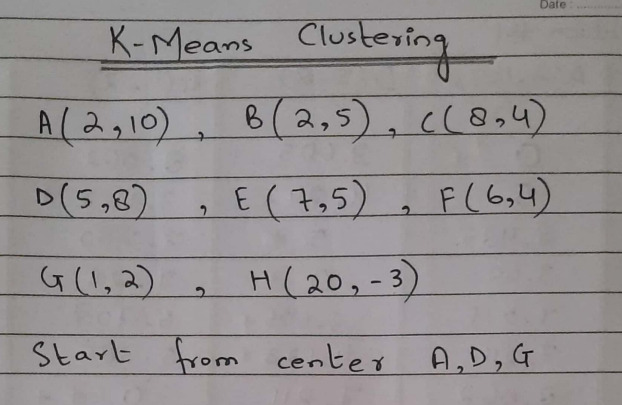 Date
K-Means Clustering
A(2,10), B(2,5), C(8,4)
D(5,8), E(7,5), F(6,4)
G(1,2), H(20,-3)
Start from center A,D,G